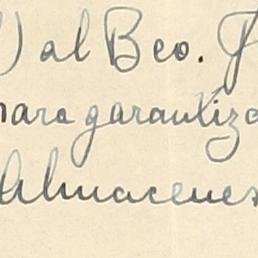 ) al Bco. P
para garantiza
Almacenes